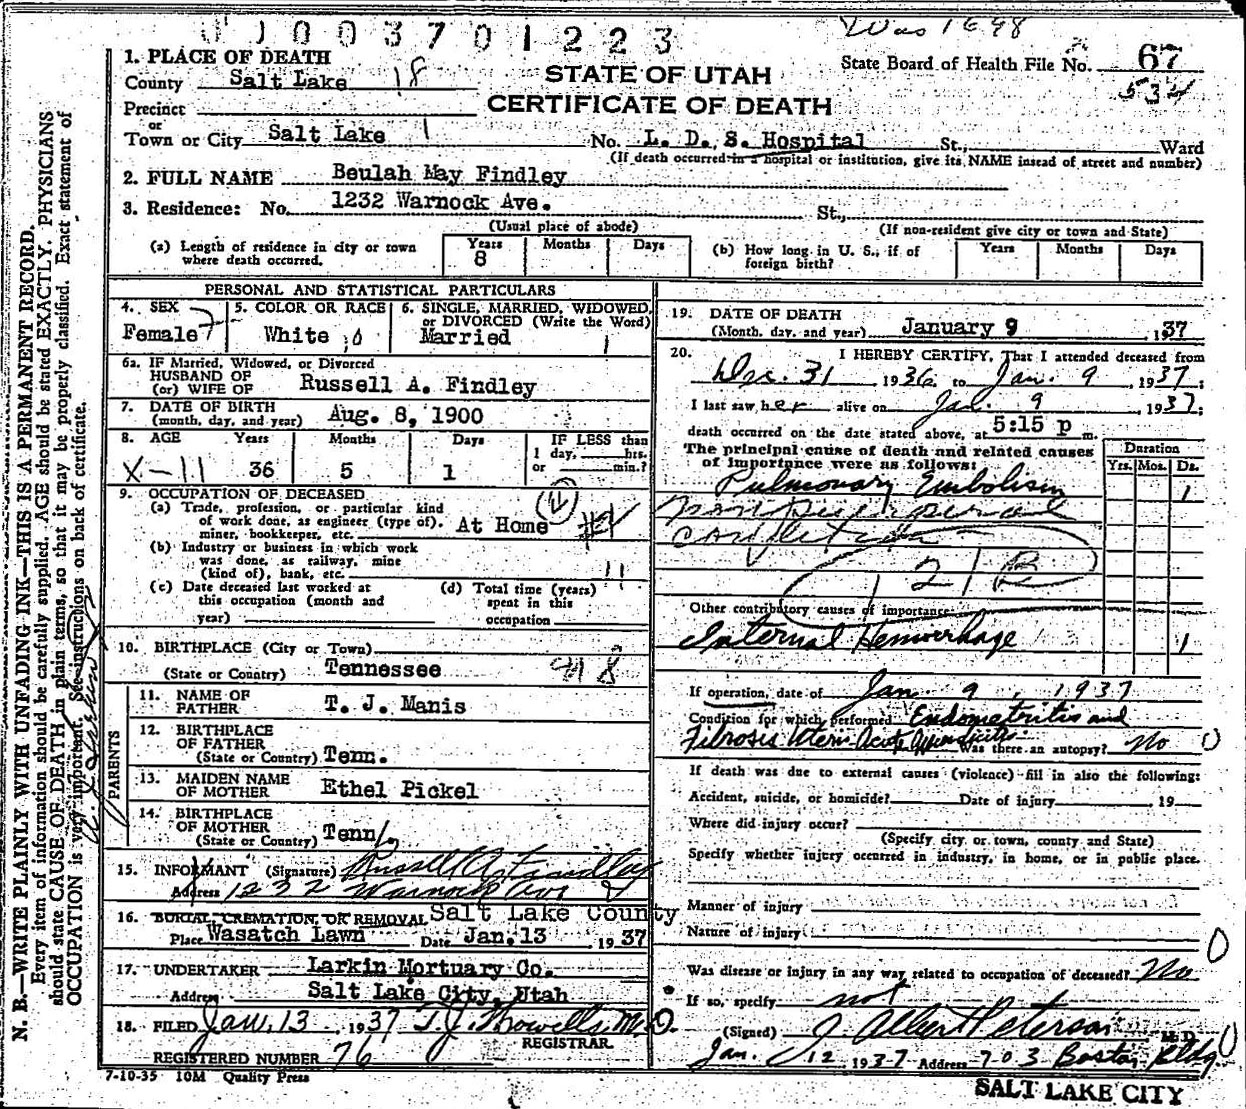 0003701223
Was 1698
1. PLACE OF DEATH
County Salt Lake 18
Precinct
or
Town or City Salt Lake 1
STATE OF UTAH
CERTIFICATE OF DEATH
State Board of Health File No. 67
534
No. L. D. S. Hospital St., Ward
(If death occurred in a hospital or institution, give its NAME instead of street and number)
2. FULL NAME Beulah May Findley
3. Residence: No. 1232 Warnock Ave. St.,
(Usual place of abode)
(If non-resident give city or town and State)
(a) Length of residence in city or town where death occurred. Years 8 Months Days
(b) How long in U. S., if of foreign birth? Years Months Days
PERSONAL AND STATISTICAL PARTICULARS
4. SEX Female
5. COLOR OR RACE White
6. SINGLE, MARRIED, WIDOWED, or DIVORCED (Write the Word) Married
6a. IF Married, Widowed, or Divorced
HUSBAND OF
(or) WIFE OF Russell A. Findley
7. DATE OF BIRTH
(month, day, and year) Aug. 8, 1900
8. AGE Years Months Days IF LESS than
1 day, hrs.
or min.?
X-11 36 5 1
9. OCCUPATION OF DECEASED
(a) Trade, profession, or particular kind
of work done, as engineer (type of),
miner, bookkeeper, etc. At Home
(b) Industry or business in which work
was done, as railway, mine
(kind of), bank, etc. 11
(c) Date deceased last worked at
this occupation (month and
year)
(d) Total time (years)
spent in this
occupation
10. BIRTHPLACE (City or Town)
(State or Country) Tennessee
PARENTS
11. NAME OF
FATHER T. J. Manis
12. BIRTHPLACE
OF FATHER
(State or Country) Tenn.
13. MAIDEN NAME
OF MOTHER Ethel Pickel
14. BIRTHPLACE
OF MOTHER
(State or Country) Tenn
15. INFORMANT (Signature) Russell A. Findley
Address 1232 Warnock Ave
16. BURIAL, CREMATION, OR REMOVAL Salt Lake County
Place Wasatch Lawn Date Jan. 13 1937
17. UNDERTAKER Larkin Mortuary Co.
Address Salt Lake City, Utah
18. FILED Jan. 13, 1937 T. J. Howells, M.D.
REGISTRAR
REGISTERED NUMBER 76
7-10-35 10M Quality Press
19. DATE OF DEATH
(Month, day, and year) January 9 , 1937
20. I HEREBY CERTIFY, That I attended deceased from
Dec. 31 1936 to Jan. 9, 1937;
I last saw her alive on Jan. 9 1937;
death occurred on the date stated above, at 5:15 p m.
The principal cause of death and related causes
of importance were as follows:
Duration
Yrs. Mos. Ds.
Pulmonary Embolism 1
non puerperal
condition
121B
Other contributory causes of importance:
Internal Hemorrhage 1
If operation, date of Jan. 9, 1937
Condition for which performed Endometritis and
Fibrosis Uteri - Acute Appendicitis Was there an autopsy? No
If death was due to external causes (violence) fill in also the following:
Accident, suicide, or homicide? Date of injury 19
Where did injury occur?
(Specify city or town, county and State)
Specify whether injury occurred in industry, in home, or in public place.
Manner of injury
Nature of injury
Was disease or injury in any way related to occupation of deceased? No
If so, specify not
(Signed) J. Albert Peterson M.D.
Jan. 12 1937 Address 703 Boston Bldg.
SALT LAKE CITY
N. B.—WRITE PLAINLY WITH UNFADING INK—THIS IS A PERMANENT RECORD.
Every item of information should be carefully supplied. AGE should be stated EXACTLY. PHYSICIANS
should state CAUSE OF DEATH in plain terms, so that it may be properly classified. Exact statement of
OCCUPATION is very important. See instructions on back of certificate.